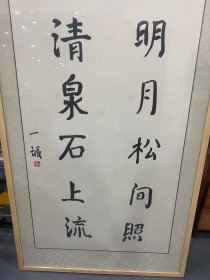 明月松间照
清泉石上流
一诚